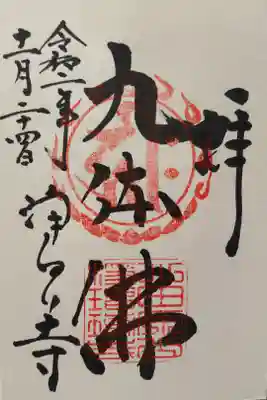 拝
九体佛
令和二年
十一月二十四日
浄るり寺